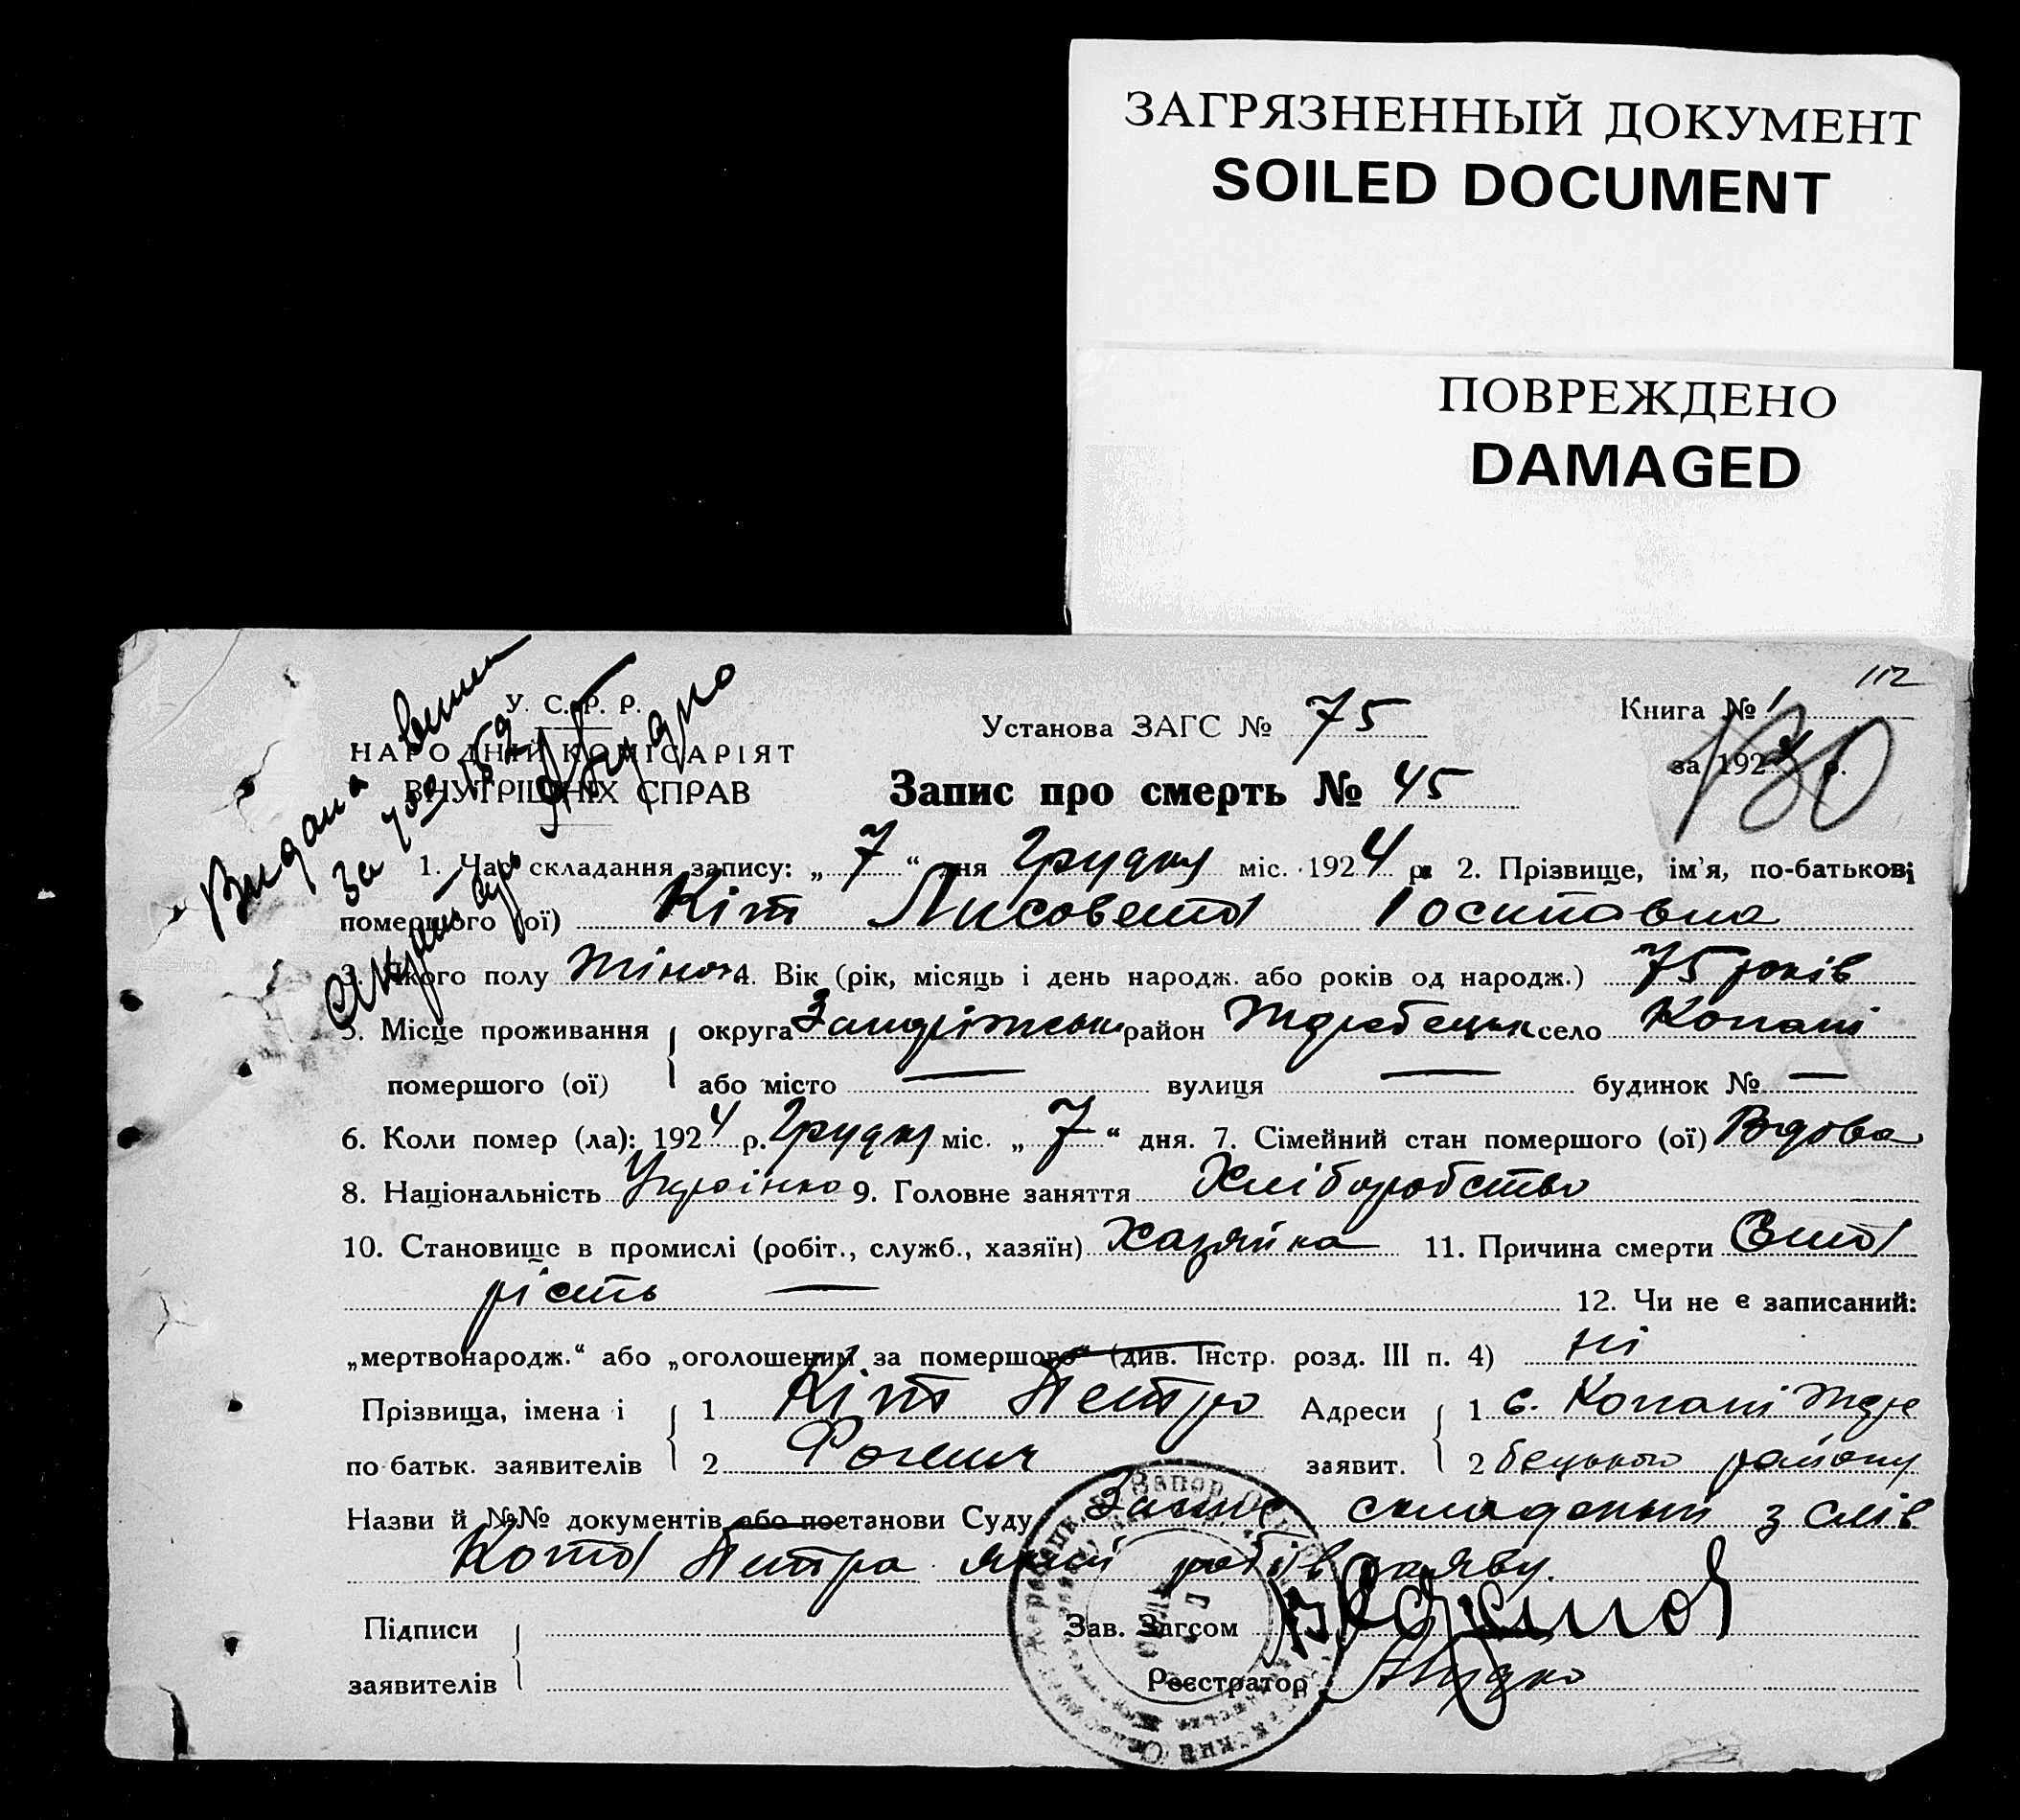 ЗАГРЯЗНЕННЫЙ ДОКУМЕНТ
SOILED DOCUMENT
ПОВРЕЖДЕНО
DAMAGED
112
У. С. Р. Р.
НАРОДНІЙ КОМІСАРІЯТ
ВНУТРІШНІХ СПРАВ
Видана
за № 159
Установа ЗАГС № 75
Книга № 1
за 1924 р.
130
Запис про смерть № 45
1. Час складання запису: „ 7 “ дня Грудня міс. 1924 р. 2. Прізвище, ім'я, по-батькові
помершого (ої) Кіт Лисовета Іосиповна
3. Якого полу жіноч 4. Вік (рік, місяць і день народж. або років од народж.) 75 років
5. Місце проживання округа Запоріжськ район Жеребецьк село Копані
помершого (ої) або місто — вулиця — будинок № —
6. Коли помер (ла): 1924 р. Грудня міс. „ 7 “ дня. 7. Сімейний стан помершого (ої) Вдова
8. Національність Українка 9. Головне заняття Хліборобство
10. Становище в промислі (робіт., служб., хазяїн) Хазяйка 11. Причина смерти Ста
рість — 12. Чи не є записаний:
„мертвонародж.“ або „оголошеним за помершого“ (див. Інстр. розд. III п. 4) ні
Прізвища, імена і 1 Кіт Петро Адреси 1 с. Копані Жере
по батьк. заявителів 2 заявит. 2 бецького району
Назви й №№ документів або постанови Суду Запис складений з слів
Кота Петра який робів заяву.
Підписи Зав. Загсом
заявителів Реєстратор